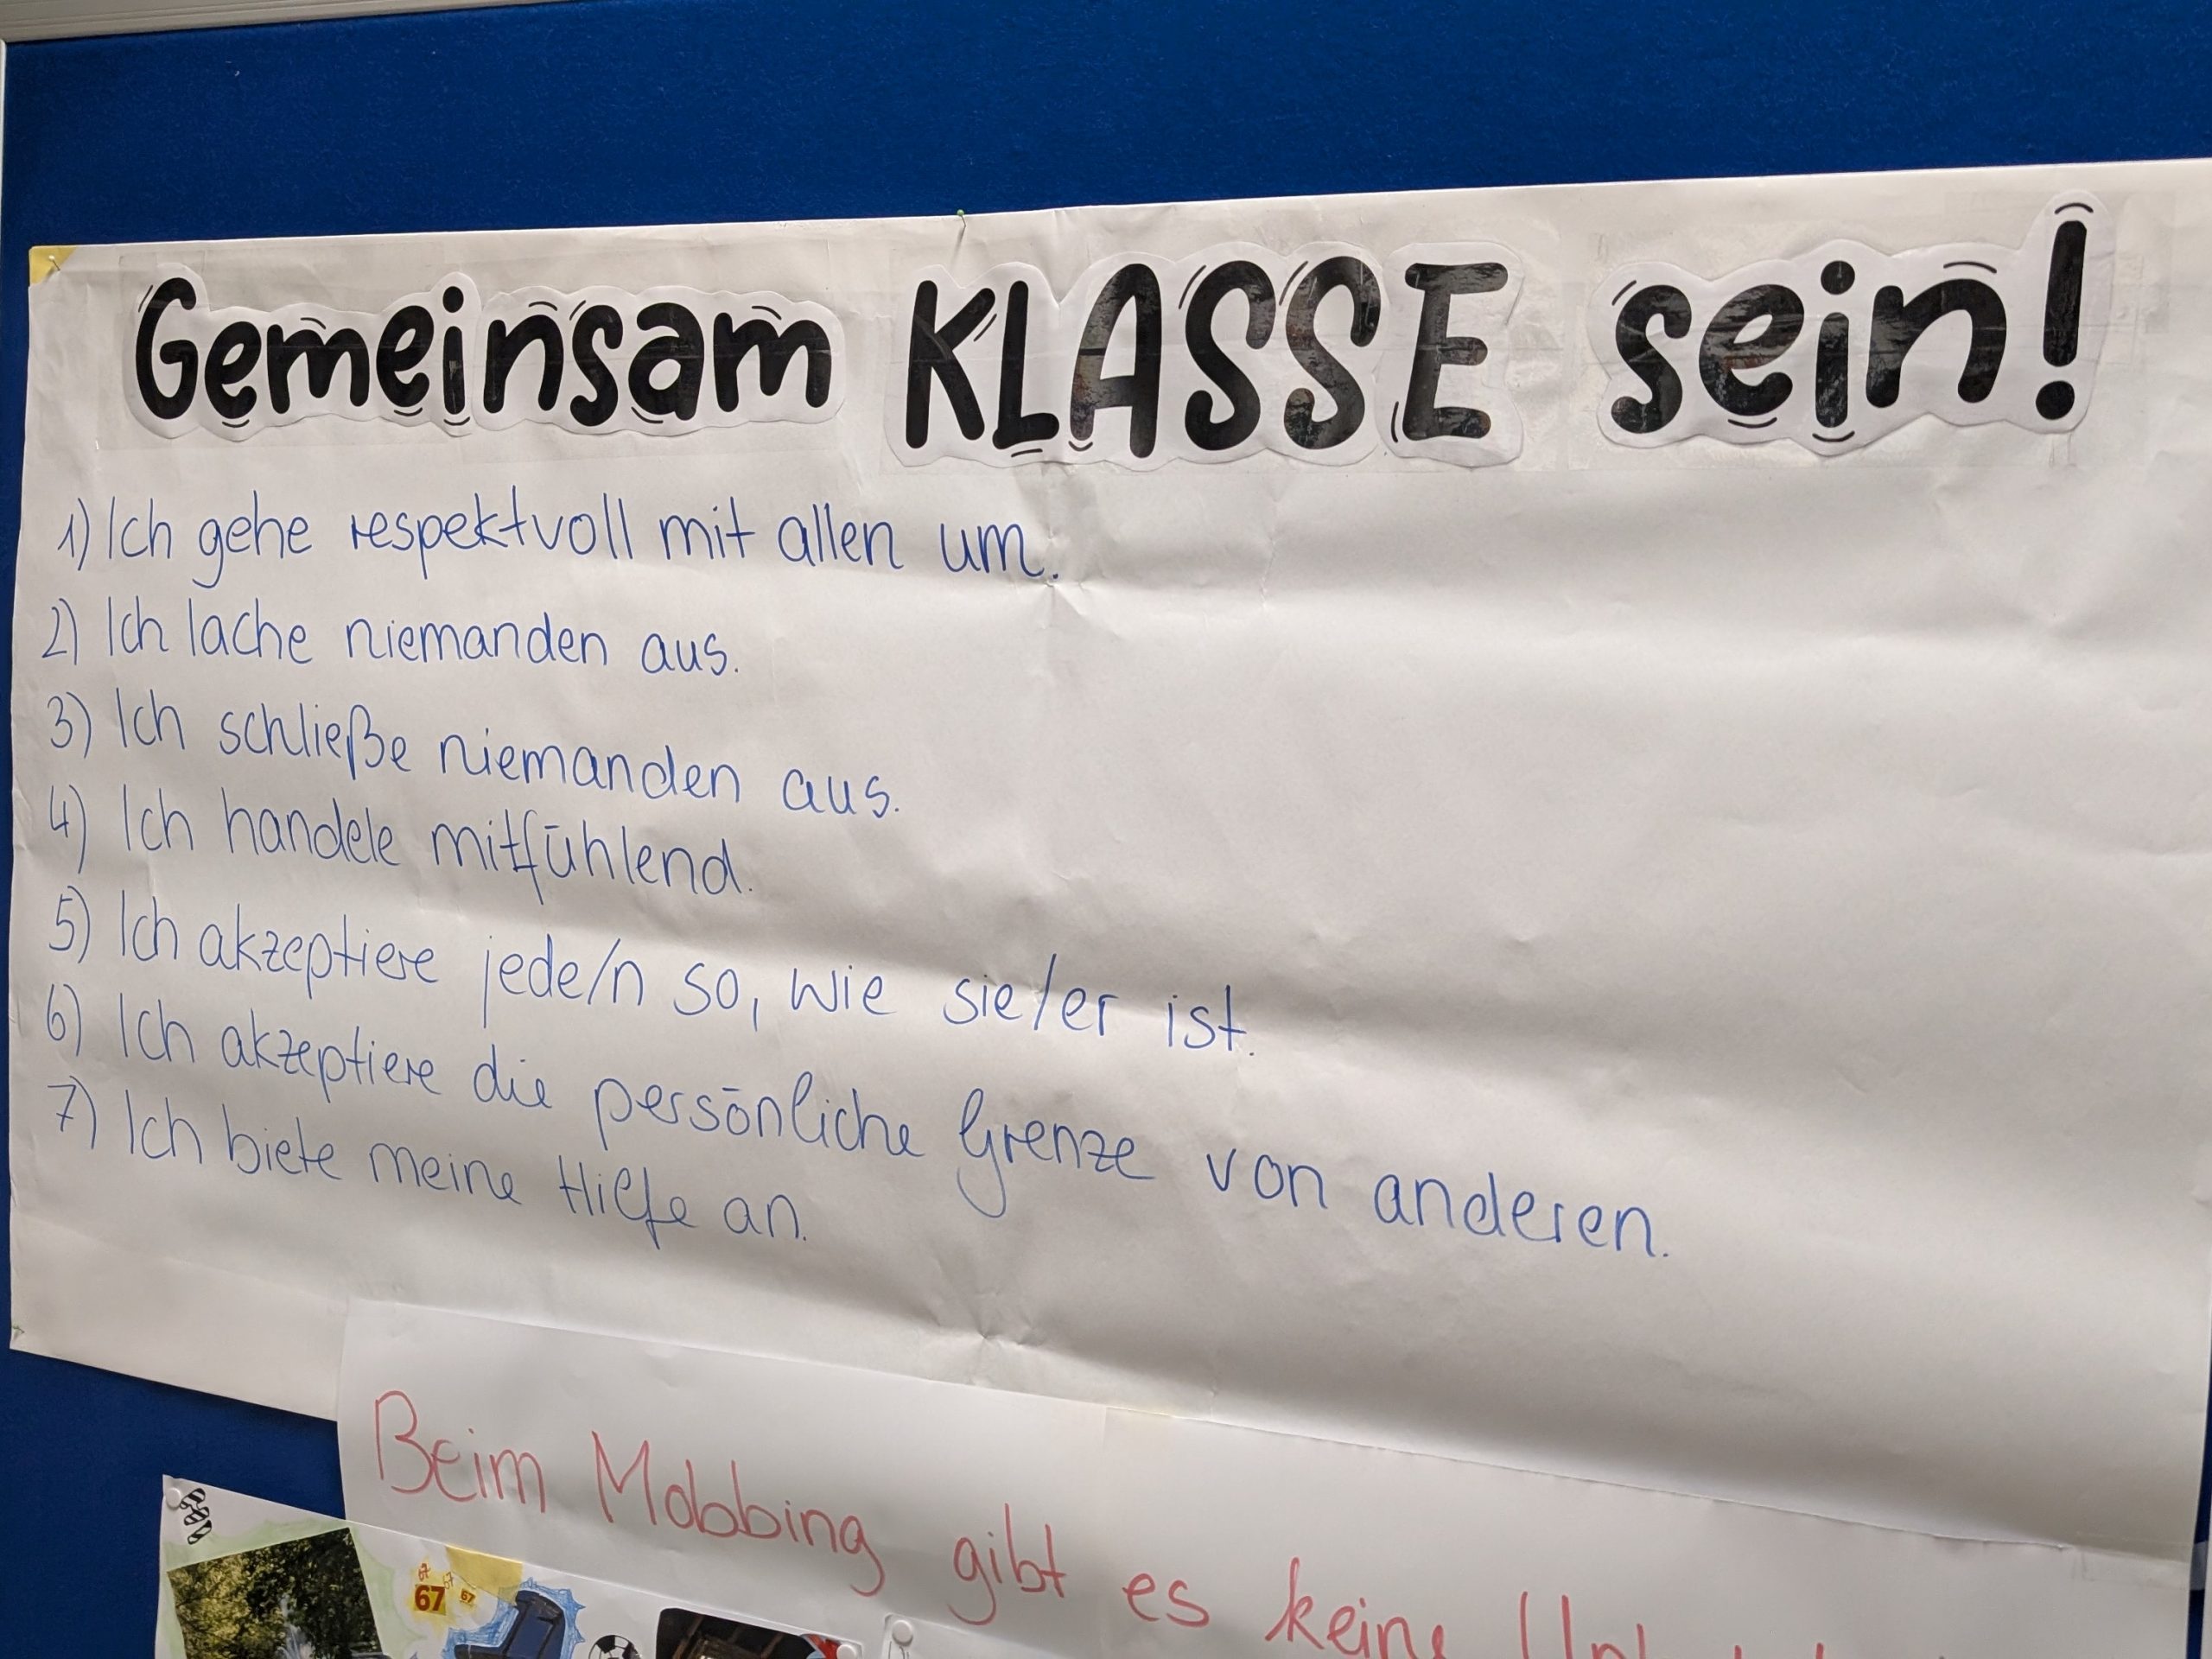 Gemeinsam KLASSE sein!
1) Ich gehe respektvoll mit allen um.
2) Ich lache niemanden aus.
3) Ich schließe niemanden aus.
4) Ich handele mitfühlend.
5) Ich akzeptiere jede/n so, wie sie/er ist.
6) Ich akzeptiere die persönliche Grenze von anderen.
7) Ich biete meine Hilfe an.
Beim Mobbing gibt es keine
67 67 67 67